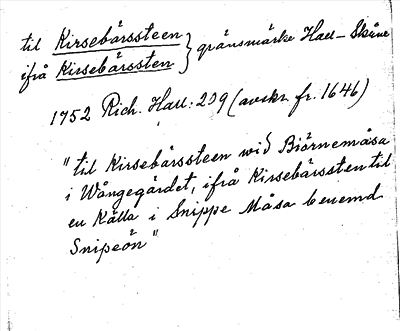 til Kirsebärssteen } gränsmärke Hall-Skåne
ifrå Kirsebärssten
1752 Rich. Hall: 209 (avskr. fr. 1646)
"til Kirsebärssteen wid Biörnemåsa
i Wångegärdet, ifrå Kirsebärssten til
en Källa i Snippe Måsa benemd
Snipeön"